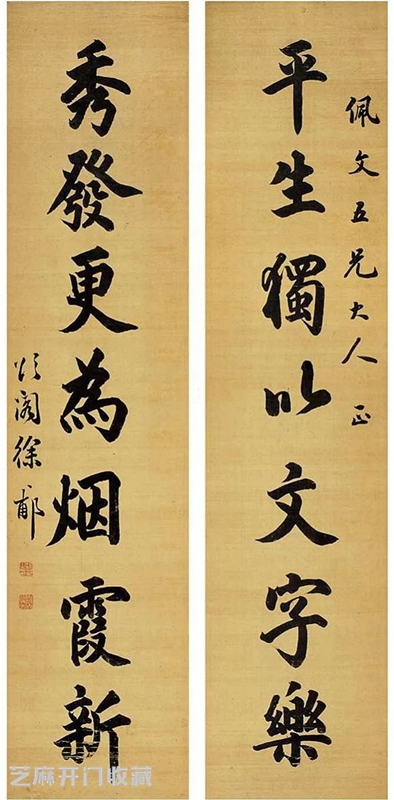 佩文五兄大人正
平生獨以文字樂
秀發更為烟霞新
頌閣徐郙
芝麻开门收藏